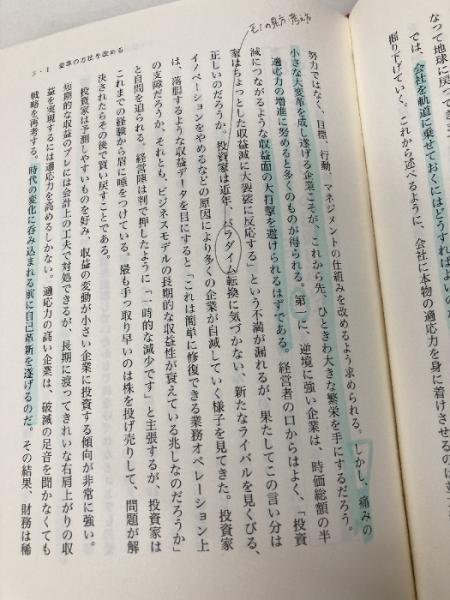 なって地球に戻って
では、会社を軌道に乗せておくにはどうすればよいのだ
掘り下げていく。これから述べるように、会社に本物の適応力を身に着けさせるのは並
努力ではなく、目標、行動、マネジメントの仕組みを改めるよう求められる。しかし、痛みの
小さな大変革を成し遂げる企業こそが、これから先、ひときわ大きな繁栄を手にするだろう。
適応力の増進に努めると多くのものが得られる。第一に、逆境に強い企業は、時価総額の半
減につながるような収益面の大打撃を避けられるはずである。経営者の口からはよく、「投資
家はちょっとした収益減に大袈裟に反応する」という不満が漏れるが、果たしてこの言い分は
正しいのだろうか。投資家は近年、パラダイム転換に気づかない、新たなライバルを見くびる、
イノベーションをやめるなどの原因により多くの企業が自滅していく様子を見てきた。投資家
は、落胆するような収益データを目にすると「これは簡単に修復できる業務オペレーション上
の支障だろうか、それとも、ビジネスモデルの長期的な収益性が衰えている兆しなのだろうか」
と自問を迫られる。経営陣は判で押したように「一時的な減少です」と主張するが、投資家は
これまでの経験から眉に唾をつけている。最も手っ取り早いのは株を投げ売りして、問題が解
決されたらその後で買い戻すことである。
投資家は予測しやすいものを好み、収益の変動が小さい企業に投資する傾向が非常に強い。
短期的な収益のブレには会計上の工夫で対処できるが、長期に渡ってきれいな右肩上がりの収
益を実現するには適応力を高めるしかない。適応力の高い企業は、破滅の足音を聞かなくても
戦略を再考する。時代の変化に呑み込まれる前に自己革新を遂げるのだ。その結果、財務は稀
5-1 変革の方法を改める
ものの見方・考え方